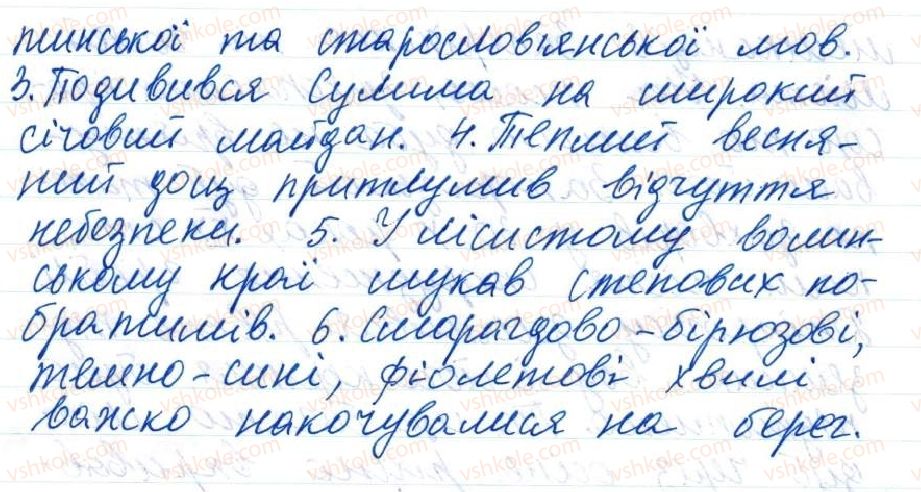 тинської та старослов'янської мов.
3. Подивився Сулима на широкий
січовий майдан. 4. Теплий весня-
ний дощ притлумив відчуття
небезпеки. 5. У лісистому волин-
ському краї шукав степових по-
братимів. 6. Смарагдово-бірюзові,
темно-сині, фіолетові хвилі
важко накочувалися на берег.